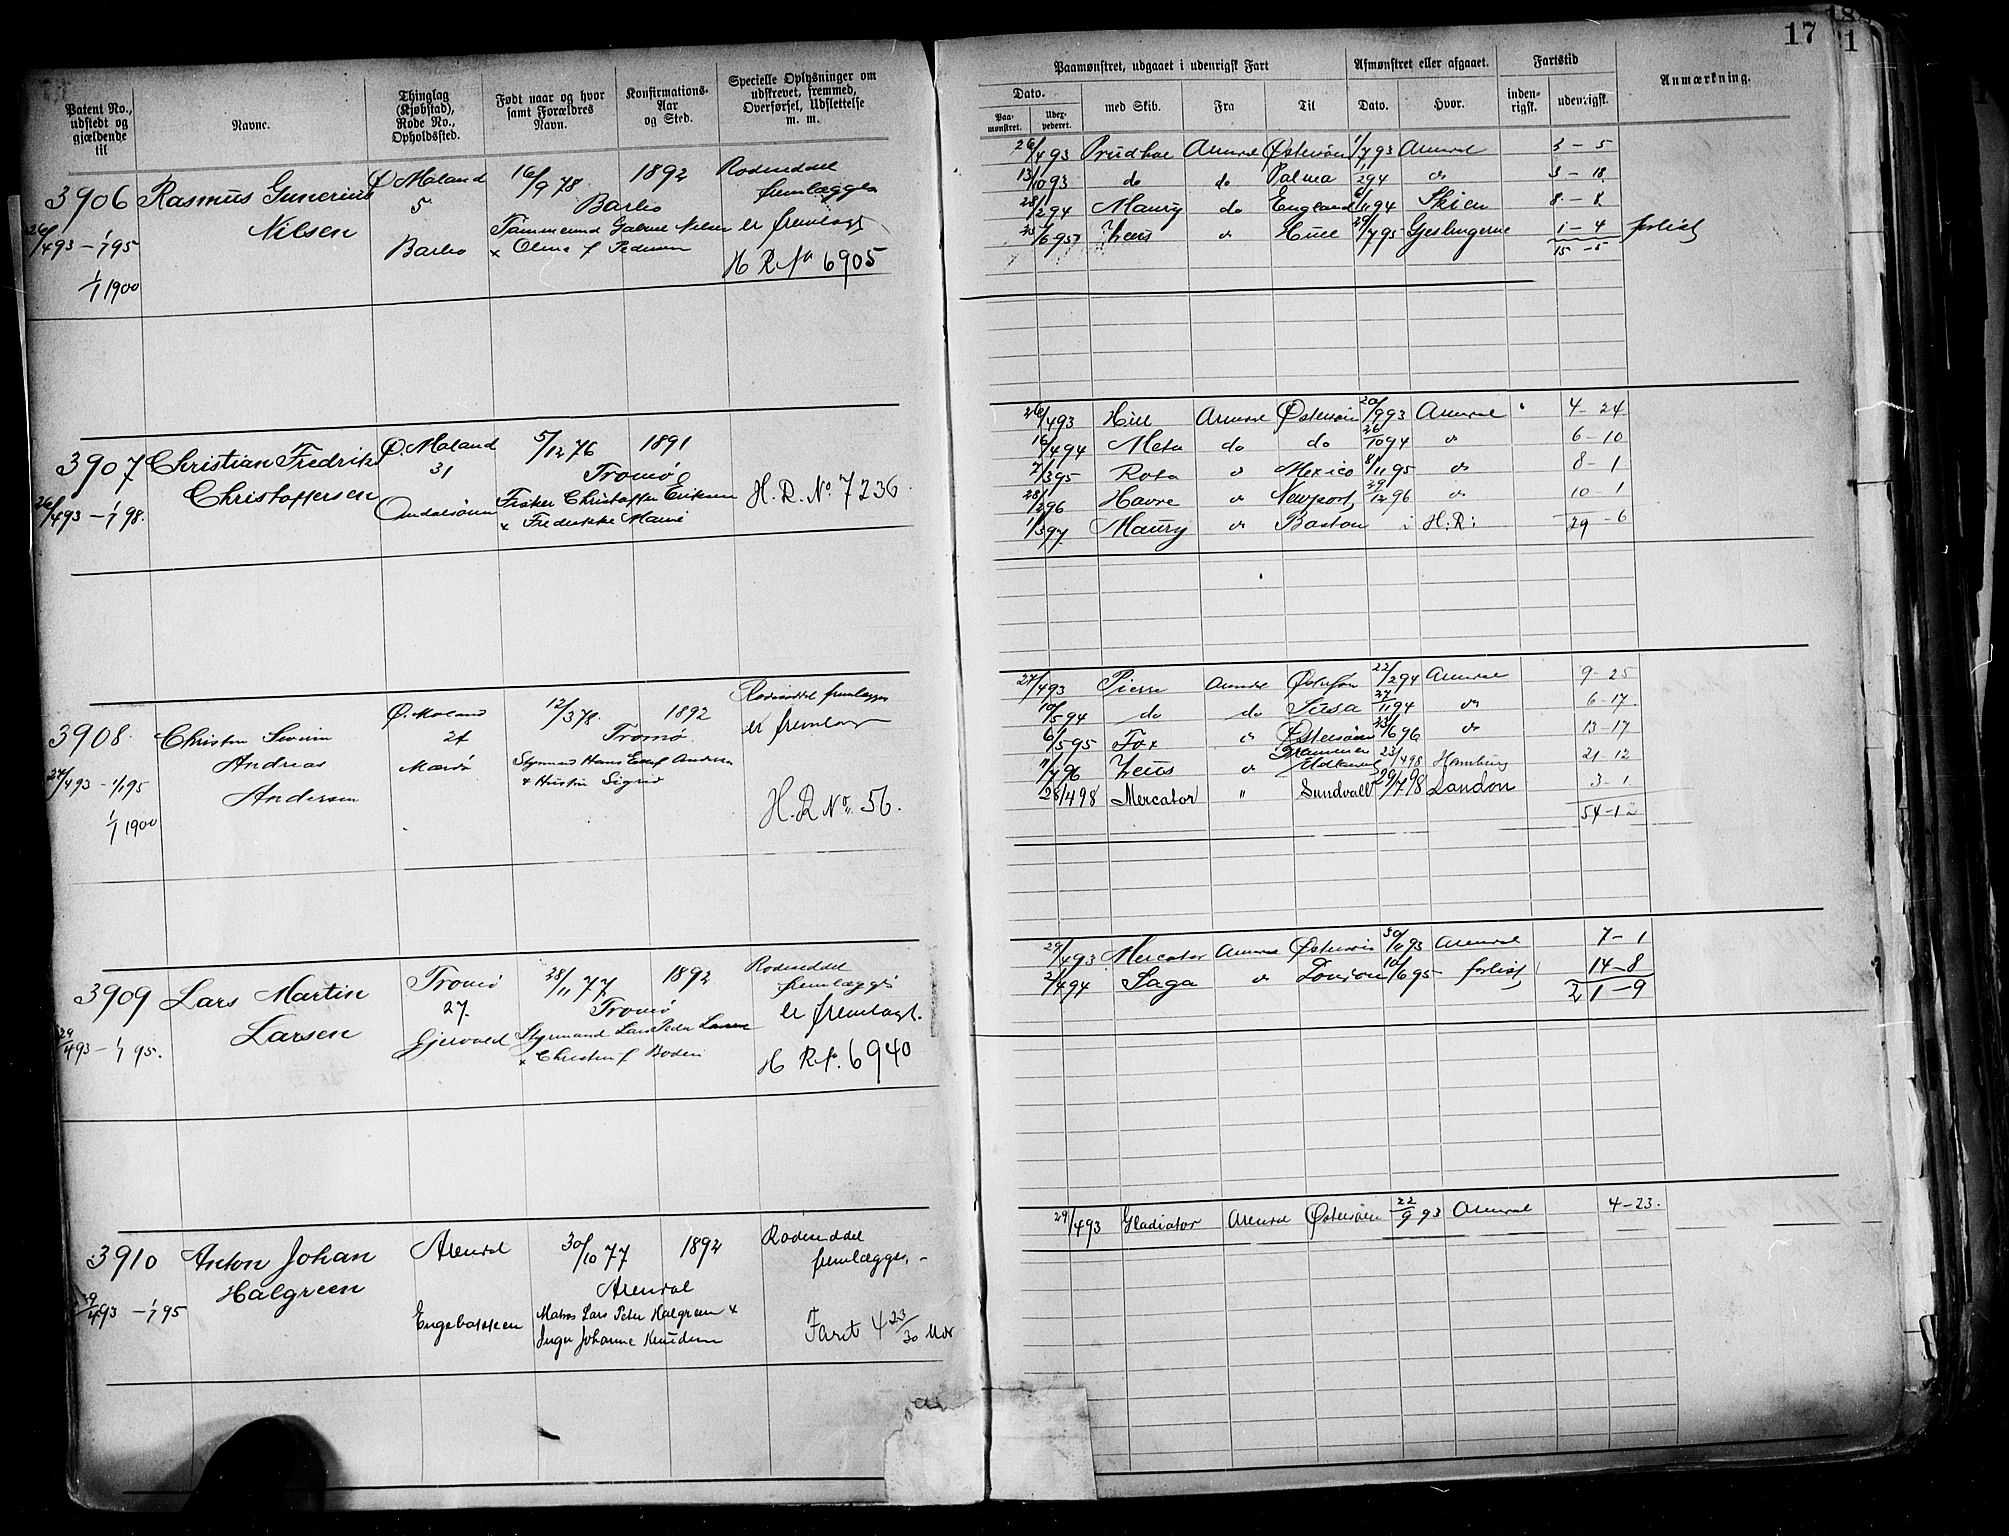 17
Patent No., udstedt og gjældende til
Navne.
Thinglag (Kjøbstad), Rode No., Opholdssted.
Født naar og hvor samt Forældres Navn.
Konfirmations-Aar og Sted.
Specielle Oplysninger om udskrevet, fremmed, Overførsel, Udslettelse m. m.
Paamønstret, udgaaet i udenrigsk Fart
Afmønstret eller afgaaet.
Fartstid
Anmærkning.
Dato.
Paa-mønstret.
Udex-pederet.
med Skib.
Fra
Til
Dato.
Hvor.
inden-rigsk.
udenrigsk.
3906 Rasmus Gunerius Ø Moland 16/9 78 1892 Rodeseddel
Nilsen 5 Barbo fremlægges
26/4 93 – 1/1 95 Barbo Gabriel Nilsen er fremlagt
x Olina f Pedersen
1/1 1900 H R No 6905
26/4 93 Prudhoe Arendal Østersøen 1/7 93 Arendal 3 – 5
13/10 93 do do Palma 1/2 94 do 3 – 18
28/2 94 Maury do England 6/11 94 Skien 8 – 8
25/6 95 Zeus do Hull 29/7 95 Gjeslingerne 1 – 4 forlist
15 – 5
3907 Christian Fredrik Ø. Moland 5/12 76 1891
Christoffersen 31 Tromø
26/4 93 – 1/1 98. Fisker Christoffer Eriksen H. R. No. 7236
x Fredrikke Marie
26/4 93 Hill Arendal Østersøen 20/9 93 Arendal 4 – 24
16/4 94 Meta do do 26/10 94 do 6 – 10
7/3 95 Rota do Mexico 8/11 95 do 8 – 1
28/2 96 Havre do Newport 29/12 96 do 10 1
1/3 97 Maury do Boston i H:R: 29 – 6
3908 Christen Severin Ø. Moland 12/3 78. 1892 Rodeseddel fremlægges
Andreas 24 Tromø er fremlagt
27/4 93 – 1/1 95 Andersen Mærdø Styrmand Hans Andersen
1/1 1900 H. R No. 56.
27/4 93 Pierre Arendal Østersøen 22/2 94 Arendal 9 – 25
10/5 94 do do Susa 27/11 94 do 6 – 17
6/5 95 Fox do Østersøen 23/6 96 do 13 – 17
11/7 96 Zeus do 23/4 98 Hamburg 21 – 12
28/4 98 Mercator " Sundvall 29/7 98 London 3 – 1
54 – 12
3909 Lars Martin Tromø 28/11 77 1892 Rodeseddel
Larsen 27. Tromø fremlægges
29/4 93 – 1/1 95. Gjervold Styrmand Lars Peder Larsen er fremlagt.
x Christine f Boden H R No. 6940
29/4 93 Mercator Arendal Østersøen 30/11 93 Arendal 7 – 1
2/4 94 Saga do London 10/6 95 forlist 14 – 8
21 – 9
3910 Anton Johan Arendal 30/10 77 1892 Rodeseddel
Halgreen Arendal fremlægges. –
29/4 93 – 1/1 95 Engebakken Matros Lars Peter Halgreen x Faret 4 23/30 Mdr
Inger Johanne Knudsen
29/4 93 Gladiator Arendal Østersøen 22/9 93 Arendal 4 – 23.